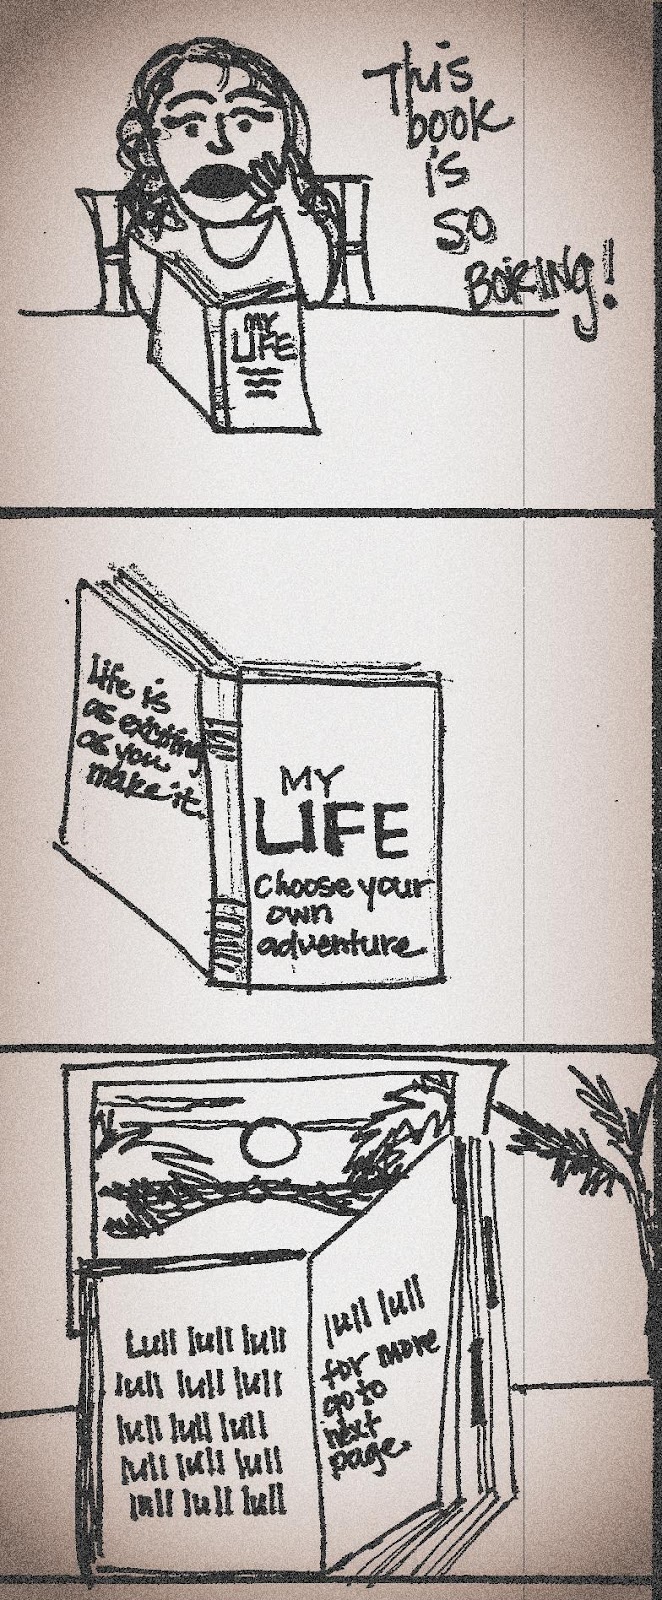 This
book
is
so
BORING!
MY
LIFE
Life is
as exciting
as you
make it.
MY
LIFE
Choose your
own
adventure
Lull lull lull
lull lull lull
lull lull lull
lull lull lull
lull lull lull
lull lull
for more
go to
next
page.